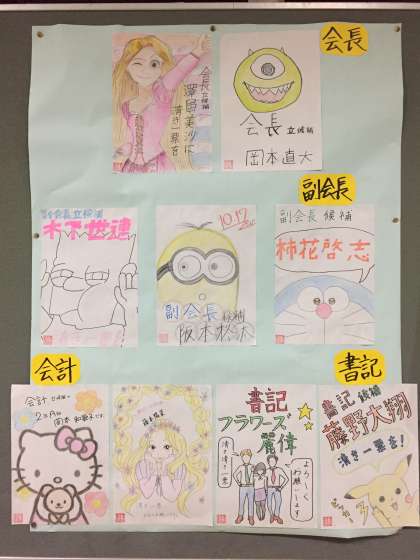 会長
会長立候補
澤田美沙に
清き一票を
会長 立候補
岡本直大
副会長
副会長立候補
木下世連
10.17
副会長 候補
阪本
副会長 候補
柿花啓志
会計
書記
会計 立候補
2年
岡本 和歌子です。
書記
フラワーズ
麗偉
清き一票
よろしく
お願いします
書記 候補
藤野大翔
清き一票を!